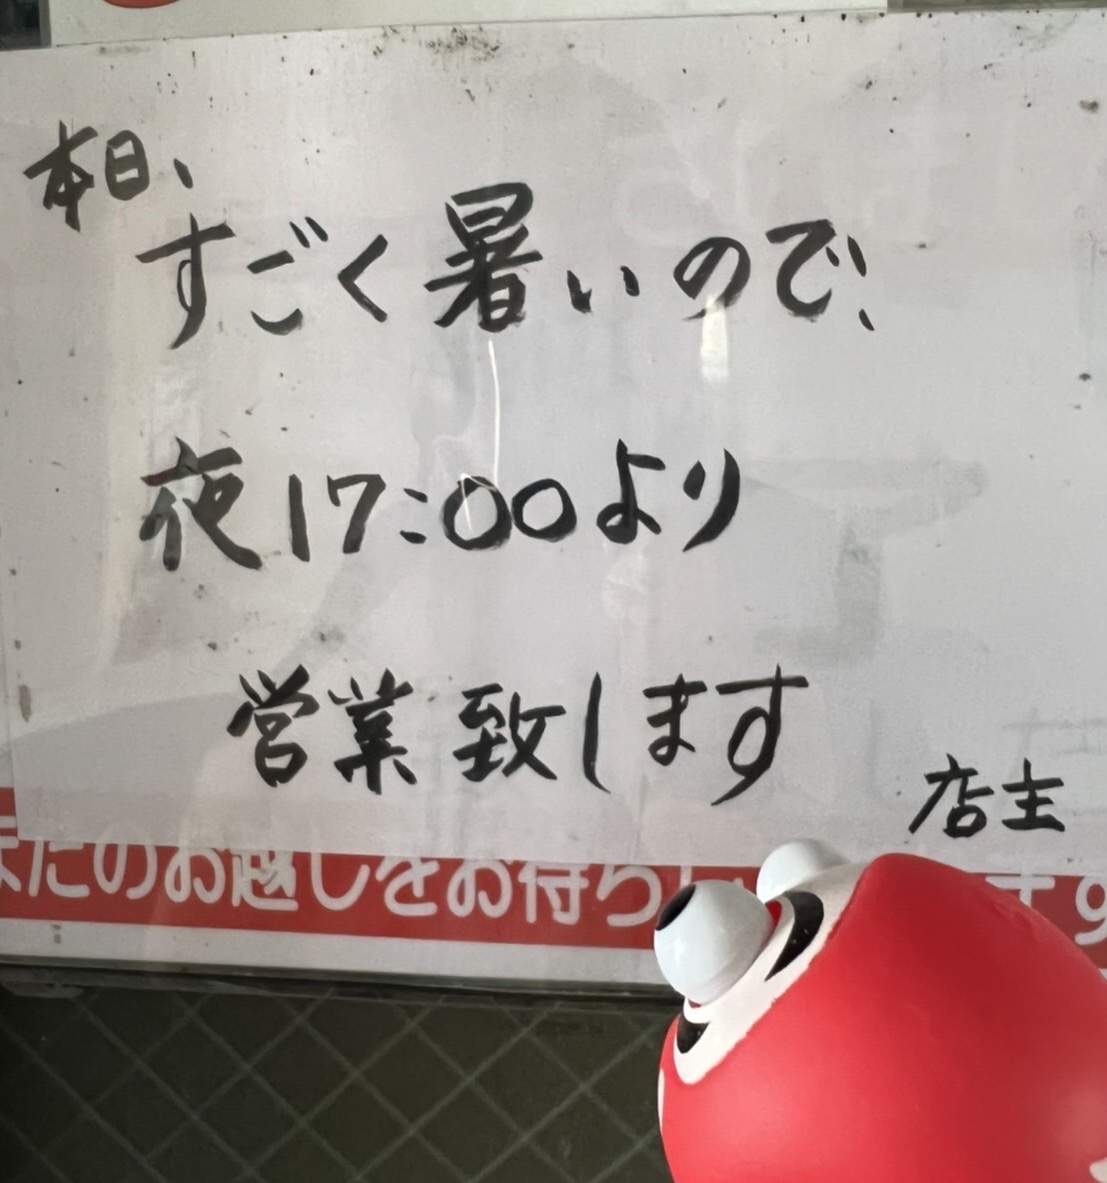 本日、
すごく暑いので、
夜17:00より
営業致します
店主
またのお越しをお待ち
ます